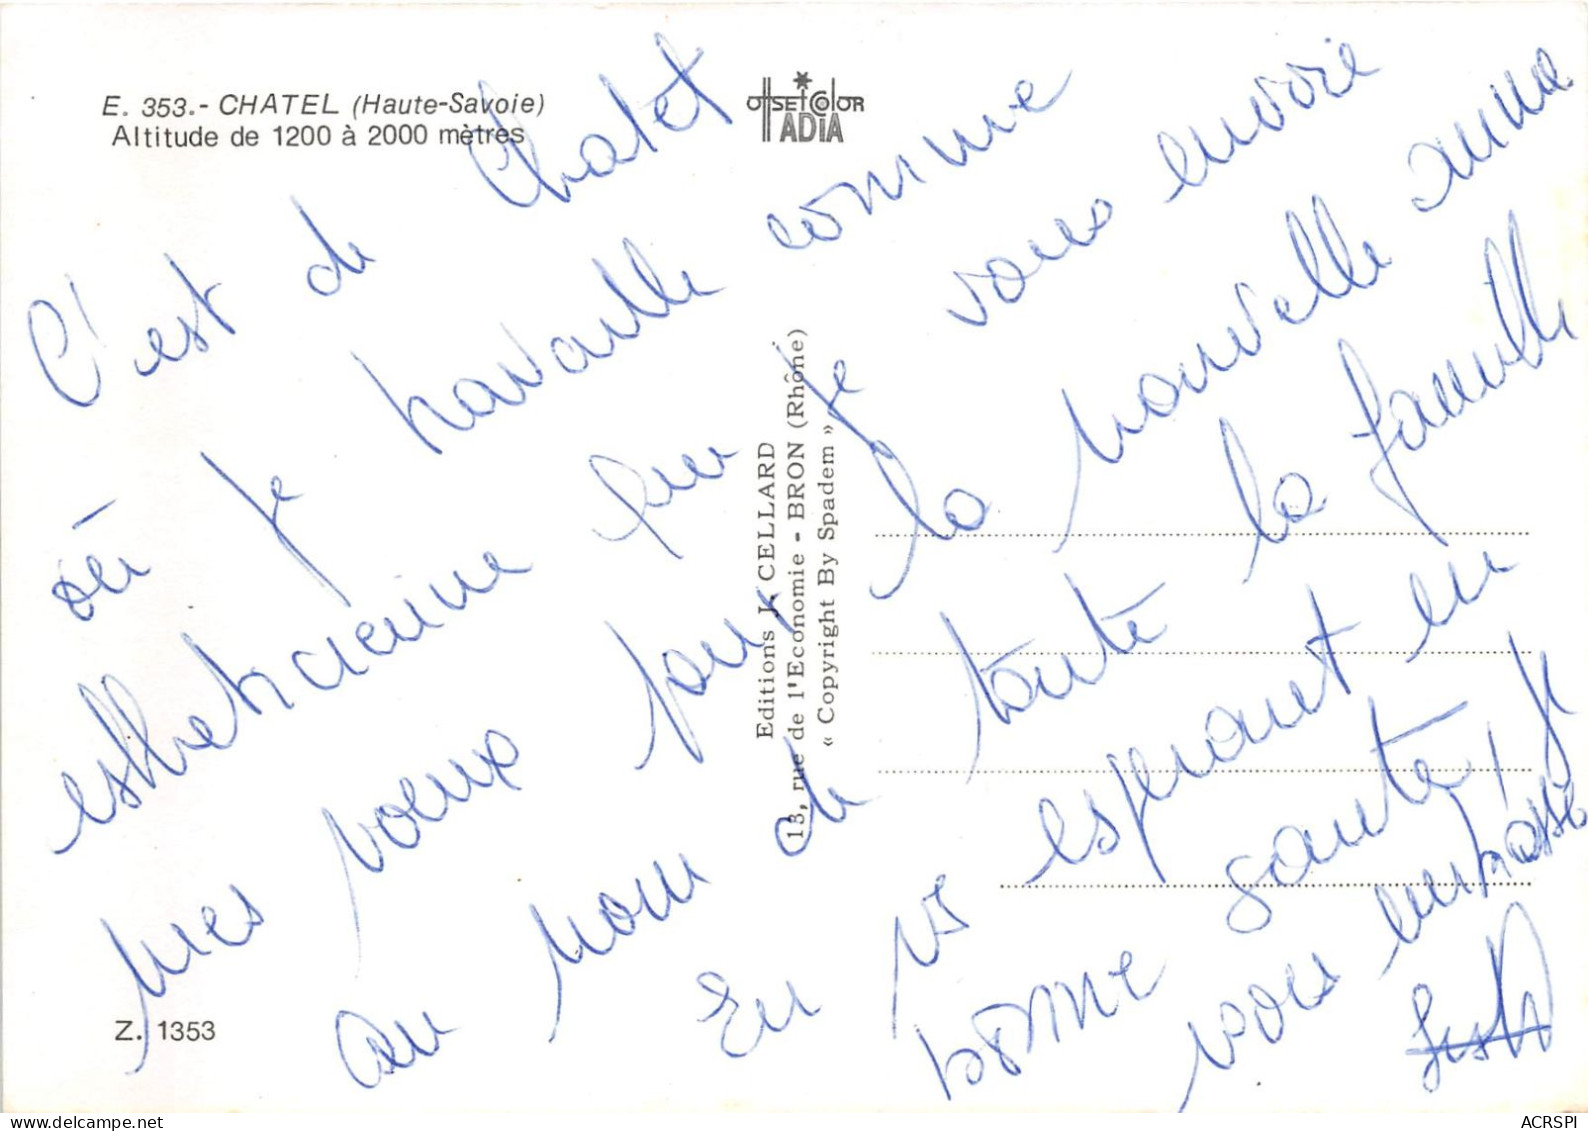 E. 353.- CHATEL (Haute-Savoie)
Altitude de 1200 à 2000 mètres
OffSET COLOR
ADIA
C'est de Chatel
où je travaille comme
esthetricienne que je vous envoie
mes voeux pour la nouvelle année
au nom de toute la famille
En vs esperant en
bonne santé, je
vous embrasse
Editions J. CELLARD
13, rue de l'Economie - BRON (Rhône)
« Copyright By Spadem »
Z. 1353
ACRSPI